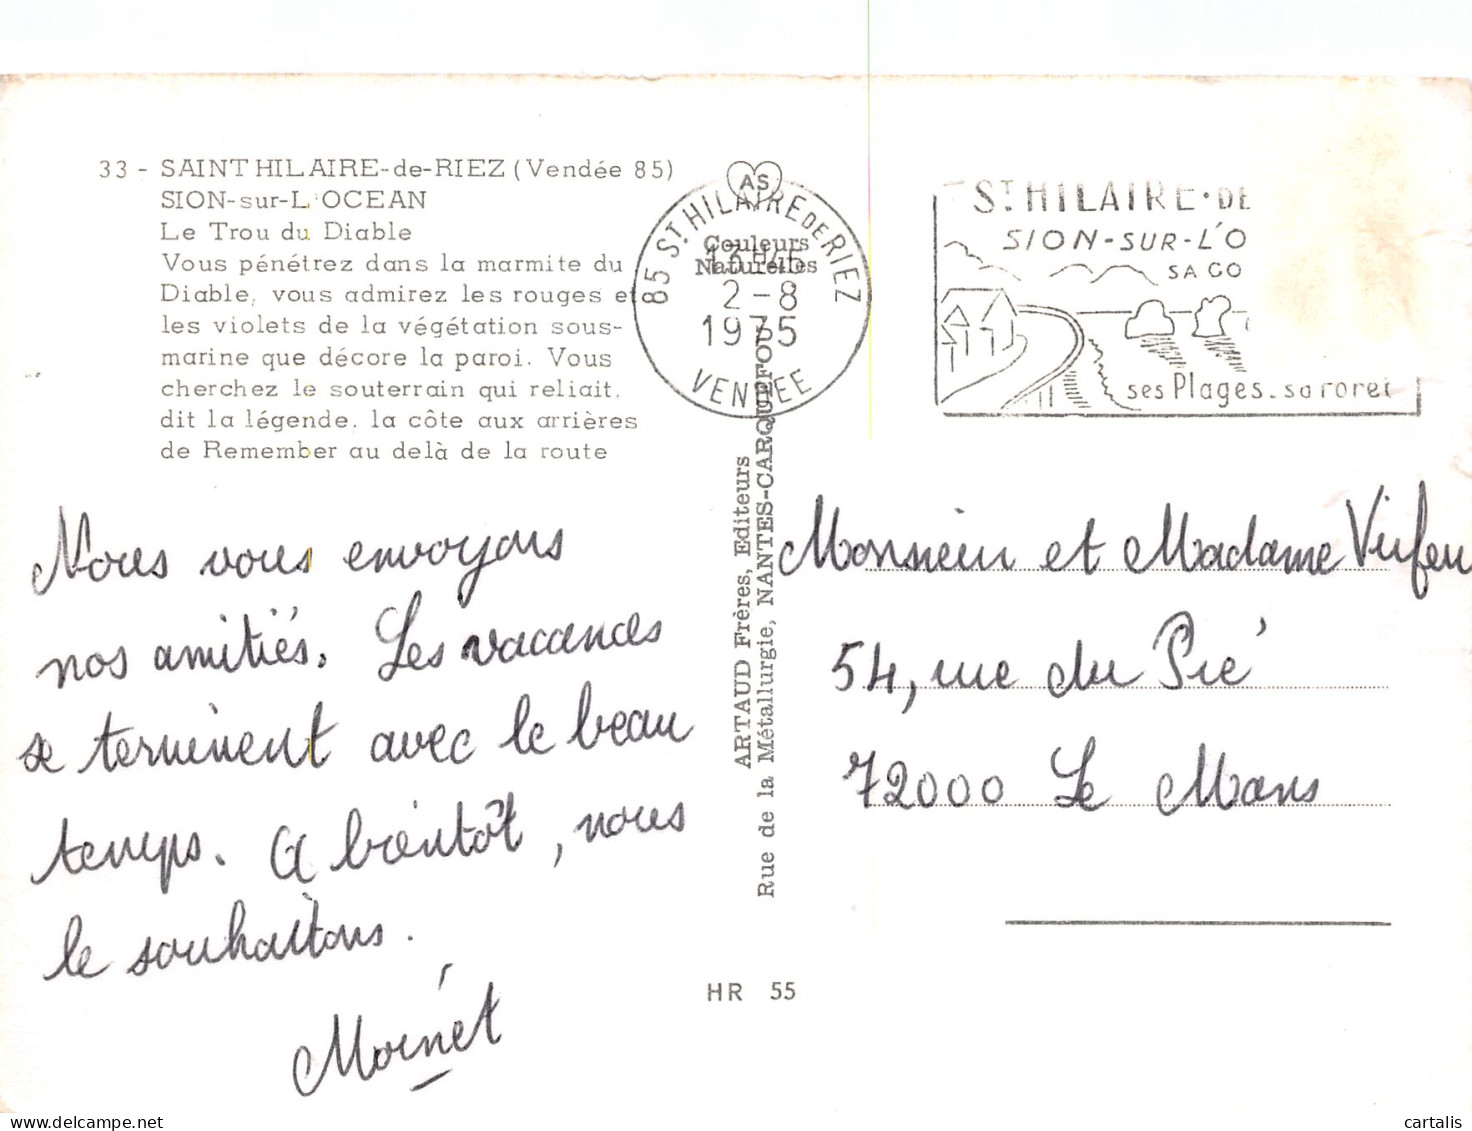 33 - SAINT HILAIRE-de-RIEZ (Vendée 85)
SION-sur-L'OCEAN
Le Trou du Diable
Vous pénétrez dans la marmite du
Diable, vous admirez les rouges et
les violets de la végétation sous-
marine que décore la paroi. Vous
cherchez le souterrain qui reliait,
dit la légende, la côte aux arrières
de Remember au delà de la route
AS
Couleurs
Naturelles
85 ST HILAIRE DE RIEZ
2-8
1975
VENDEE
ST HILAIRE·DE
SION-SUR-L'O
SA CO
ses Plages_sa foret
Nous vous envoyons
nos amitiés. Les vacances
se terminent avec le beau
temps. A bientôt, nous
le souhaitons.
Moinet
ARTAUD Frères, Editeurs
Rue de la Métallurgie, NANTES-CARQUEFOU
HR 55
Monsieur et Madame
54, rue du Pré
72000 Le Mans
cartalis